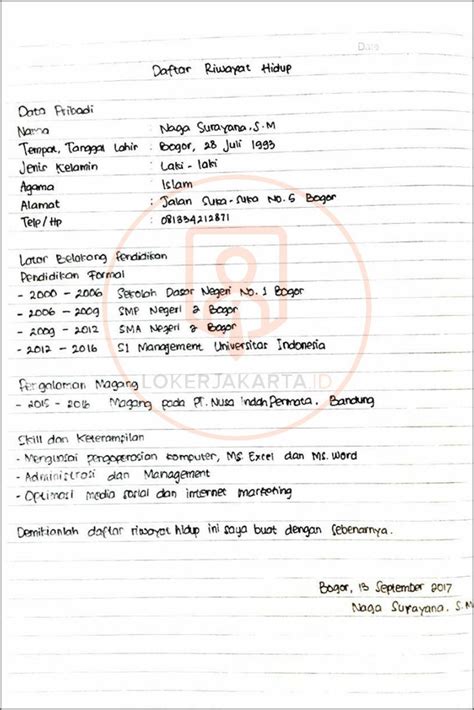 Date
Daftar Riwayat Hidup
Data Pribadi
Nama : Naga Surayana, S.M
Tempat, Tanggal Lahir : Bogor, 28 Juli 1993
Jenis Kelamin : Laki - laki
Agama : Islam
Alamat : Jalan Suka-Suka No. 5 Bogor
Telp/Hp : 081334212871
Latar Belakang Pendidikan
Pendidikan Formal
- 2000 - 2006 Sekolah Dasar Negeri No. 1 Bogor
- 2006 - 2009 SMP Negeri 2 Bogor
- 2009 - 2012 SMA Negeri 2 Bogor
- 2012 - 2016 S1 Management Universitas Indonesia
Pengalaman Magang
LOKERJAKARTA.ID
- 2015 - 2016 Magang pada PT. Nusa Indah Permata, Bandung
Skill dan Keterampilan
- Menguasai pengoperasian komputer, MS. Excel dan MS. Word
- Administrasi dan Management
- Optimasi media sosial dan internet marketing
Demikianlah daftar riwayat hidup ini saya buat dengan sebenarnya.
Bogor, 13 September 2017
Naga Surayana, S.M